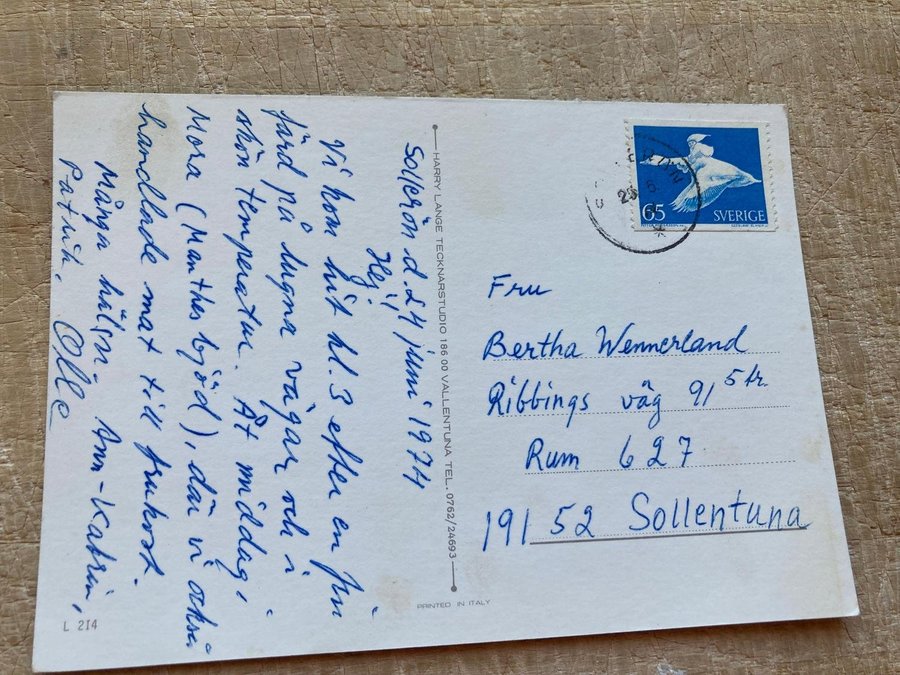 Sollerön d. 24 juni 1974
Hej!
Vi kom hit kl. 3 efter en fin
färd på lugna vägar och i
skön temperatur. Åt middag i
Mora (Manthes bjöd), där vi också
handlade mat till frukost.
Många hälsn. Ann-Katrin,
Patrik. Olle
L 214
HARRY LANGE TECKNARSTUDIO 186 00 VALLENTUNA TEL. 0762/24693
PRINTED IN ITALY
65 SVERIGE
Fru
Bertha Wennerland
Ribbings väg 91 5 tr.
Rum 627
191 52 Sollentuna